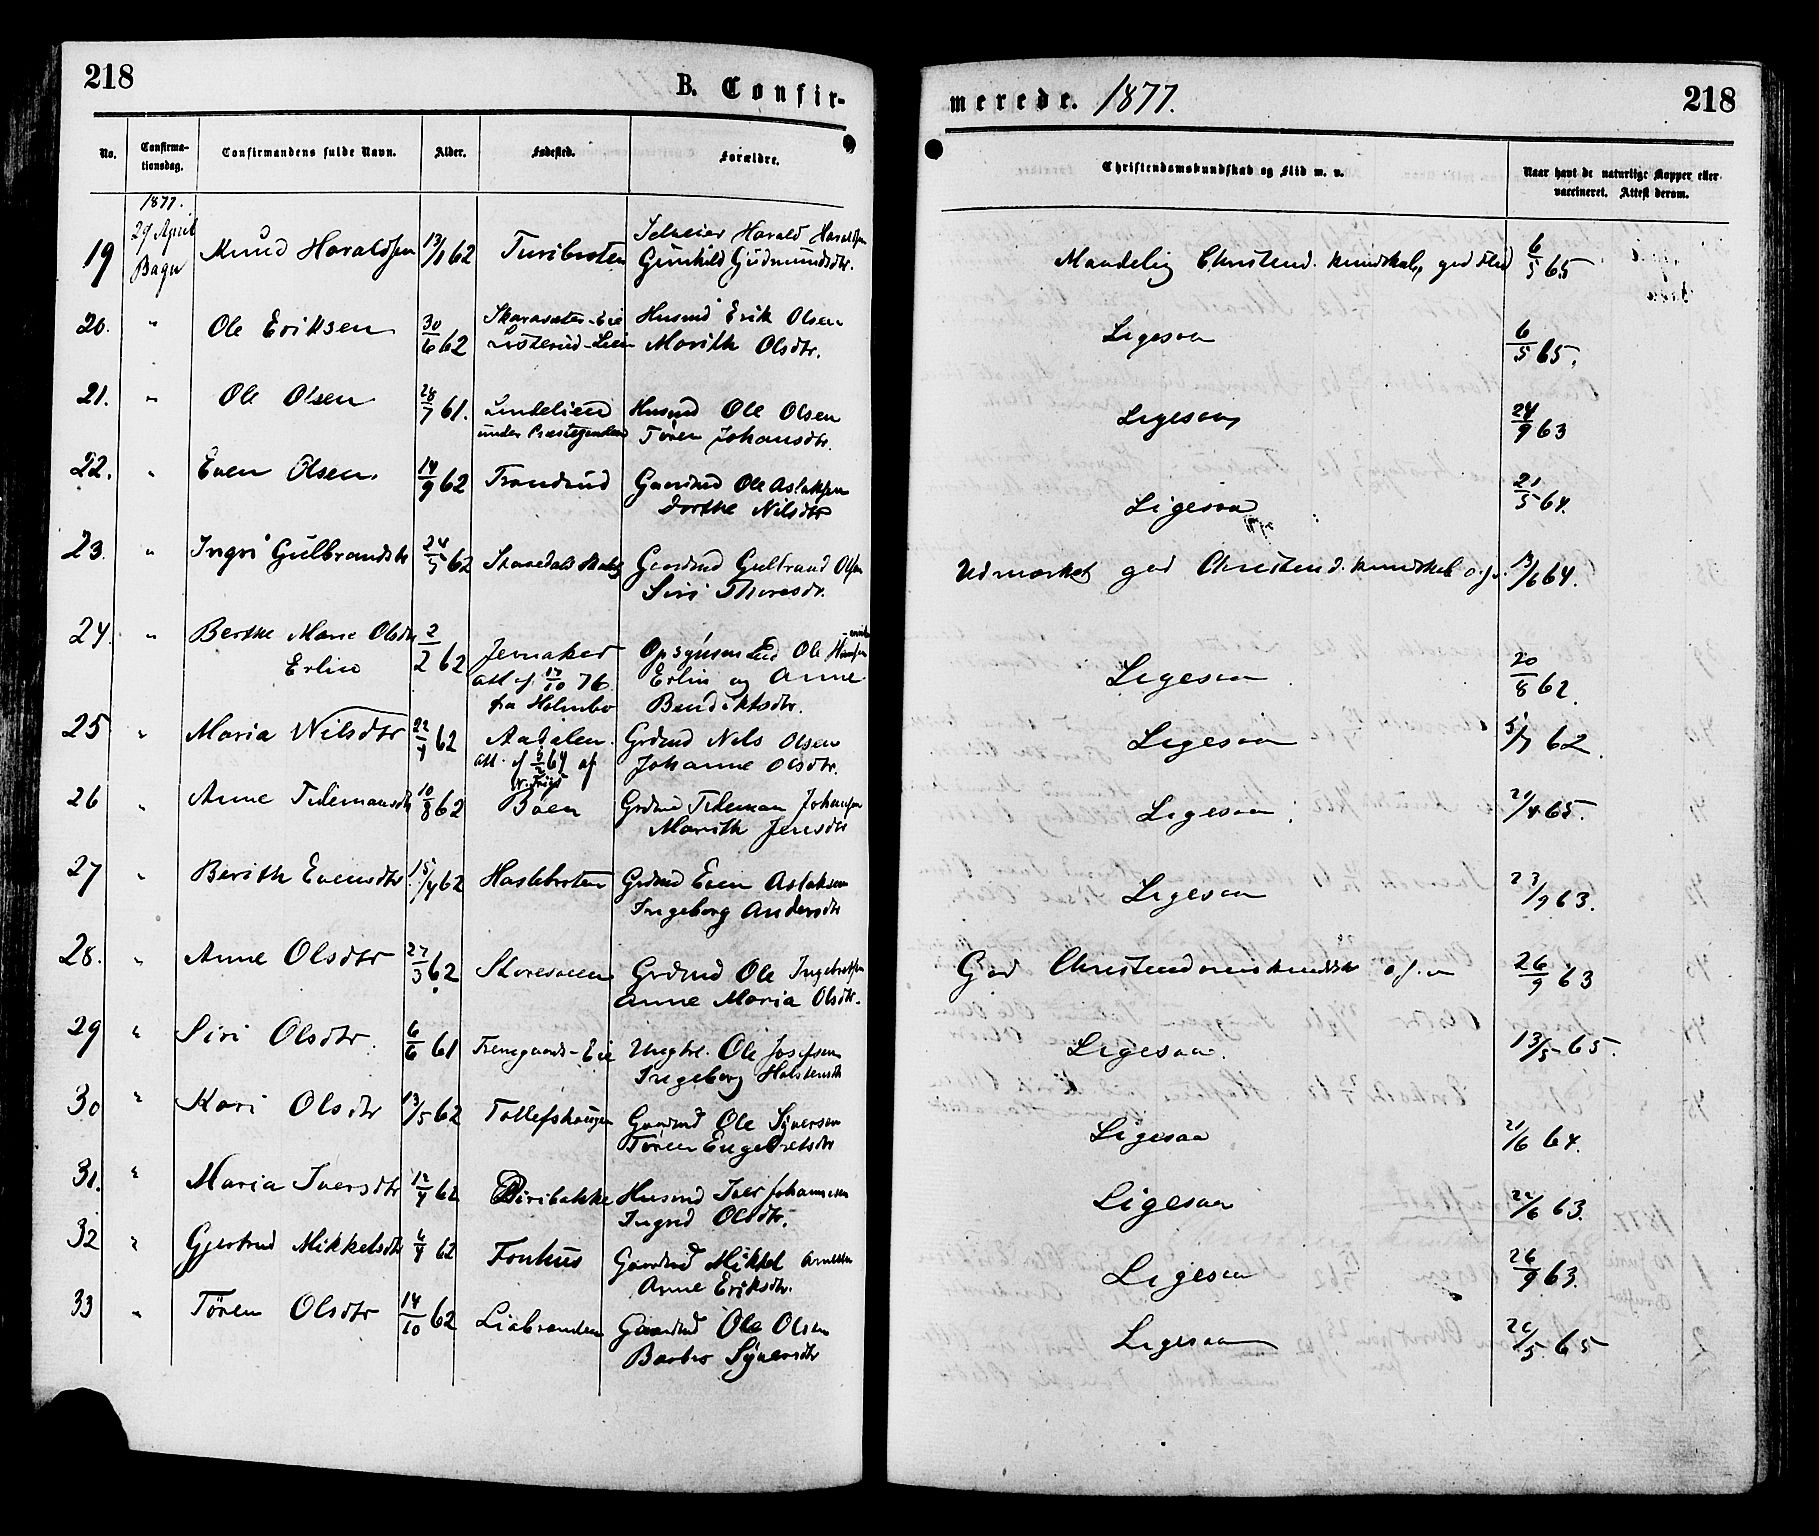 218
B. Confir-
merede. 1877.
218
No.
Confirma-
tionsdag.
Confirmandens fulde Navn.
Alder.
Fødested.
Forældre.
Christendomskundskab og Flid m. v.
Naar havt de naturlige Kopper eller
vaccineret. Attest derom.
1877.
29 April
Bagn
19 Knud Haraldsen 13/1 62 Turibraten Harald Haraldsen
Gunhild Gudmundsdtr.
Maadelig Christend. kundskab, god Flid 6/5 65
20. " Ole Eriksen 30/6 62 Husmd Erik Olsen
Marith Olsdtr.
Ligesaa 6/5 65.
21. " Ole Olsen 28/7 61. Lindelien Husmd Ole Olsen
under Præstegaarden Tøren Johansdtr.
Ligesaa 24/9 63
22. " Even Olsen. 14/9 62 Trondrud Gaardmd Ole Aslaksen
Dorthe Nilsdtr
Ligesaa 21/5 64.
23. " Ingri Gulbrandsdtr 24/5 62 Gaardmd Gulbrand Olsen
Siri Thoresdr.
Udmærket god Christend. kundskab o.s.v. 13/6 64.
24. " Berthe Marie Olsdtr 2/2 62 Jevnaker Opsynsmd Ole Hansen
Erlin att. af 17/10 76. Erlin og Anne
fra Holmbo Bendiktsdtr.
Ligesaa 20/8 62.
25 " Maria Nilsdtr 22/4 62 Aadalen. Grdmd Nils Olsen
att. af 64 af Johanne Olsdtr.
Ligesaa 5/7 62.
26 " Anne Tidemansdtr 10/8 62 Bøen Grdmd Tideman Johansen
Marith Jensdtr
Ligesaa. 21/4 65.
27 " Berith Evensdtr 15/4 62 Haslebraten Grdmd Even Aslaksen
Ingeborg Andersdtr
Ligesaa 23/9 63.
28. " Anne Olsdtr 27/3 62 Storesveen Grdmd Ole Ingebretsen
Anne Maria Olsdtr.
God Christendomskundskab o.s.v 26/9 63
29 " Siri Olsdtr. 6/6 61 Ungkl. Ole Josefsen
Ingeborg Halstensdtr
Ligesaa. 13/5 65.
30 " Kari Olsdtr 13/5 62 Tollefshaugen Gaardmd Ole Syversen
Tøren Engebretsdtr
Ligesaa 21/6 64.
31. " Maria Iversdtr 12/4 62 Biribakke Husmd Iver Johannesen
Ingrid Olsdtr.
Ligesaa 22/6 63.
32 " Gjertrud Mikkelsdtr 6/4 62 Fonhus Gaardmd Mikkel Arnesen
Anne Eriksdtr.
Ligesaa 26/9 63.
33 " Tøren Olsdtr 14/10 62 Liabraaten Gaardmd Ole Olsen
Barbro Syversdtr
Ligesaa 26/5 65